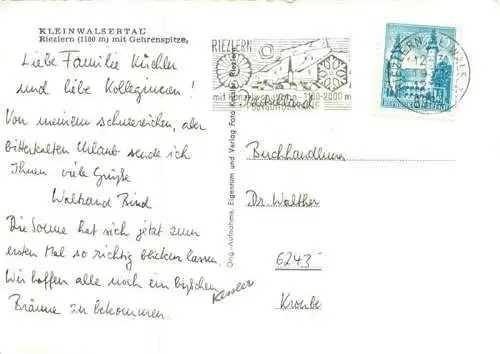 KLEINWALSERTAL
Riezlern (1100 m) mit Gehrenspitze,
Liebe Familie Küchler
und liebe Kolleginnen!
Von meinem schneereichen, aber
bitterkalten Urlaub sende ich
Ihnen viele Grüße
Waltraud Bind
Die Sonne hat sich jetzt zum
ersten Mal so richtig blicken lassen.
Wir hoffen alle noch ein bißchen
Bräune zu bekommen.
Kessler
Org.-Aufnahme, Eigentum und Verlag Foto Riezlern
RIEZLERN
mit 1100-2000 m
Deutschland
Buchhandlung
Dr. Walther
6243